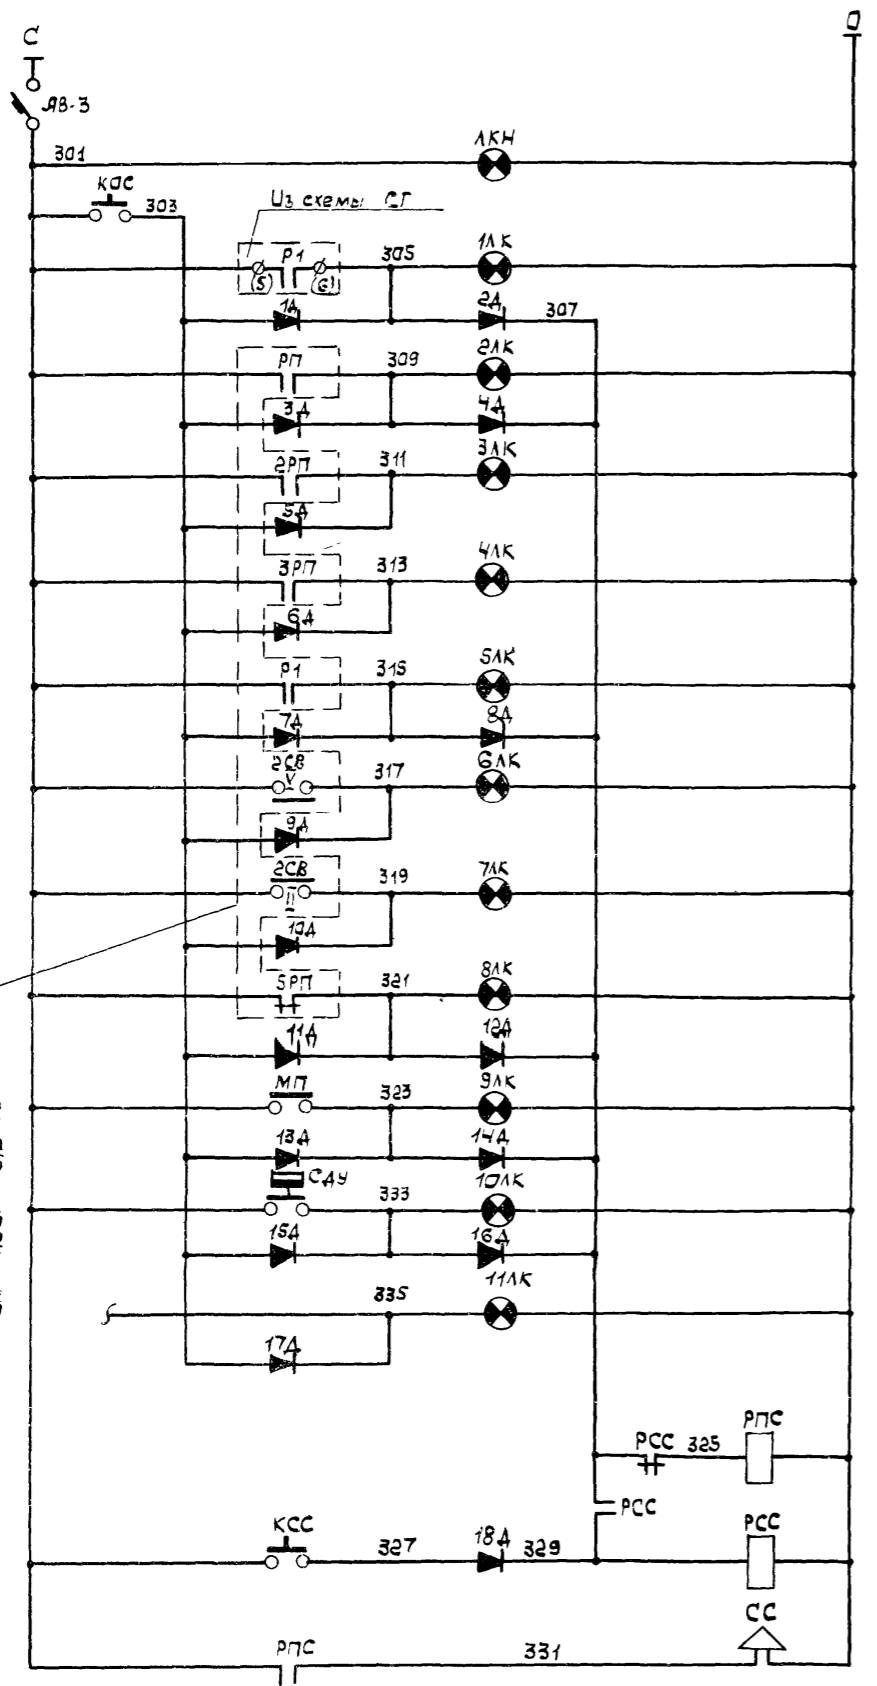 С
О
ЯВ-3
301
ЛКН
КОС
303
Из схемы СГ
Р1
305
1ЛК
(5)
(6)
1Д
2Д
307
РП
309
2ЛК
3Д
4Д
2РП
311
3ЛК
5Д
3РП
313
4ЛК
6Д
Р1
315
5ЛК
7Д
8Д
2СВ
V
317
6ЛК
9Д
2СВ
II
319
7ЛК
10Д
5РП
321
8ЛК
11Д
12Д
МП
323
9ЛК
13Д
14Д
СДУ
333
10ЛК
15Д
16Д
335
11ЛК
17Д
РСС
325
РПС
РСС
КСС
327
18Д
329
РСС
СС
РПС
331